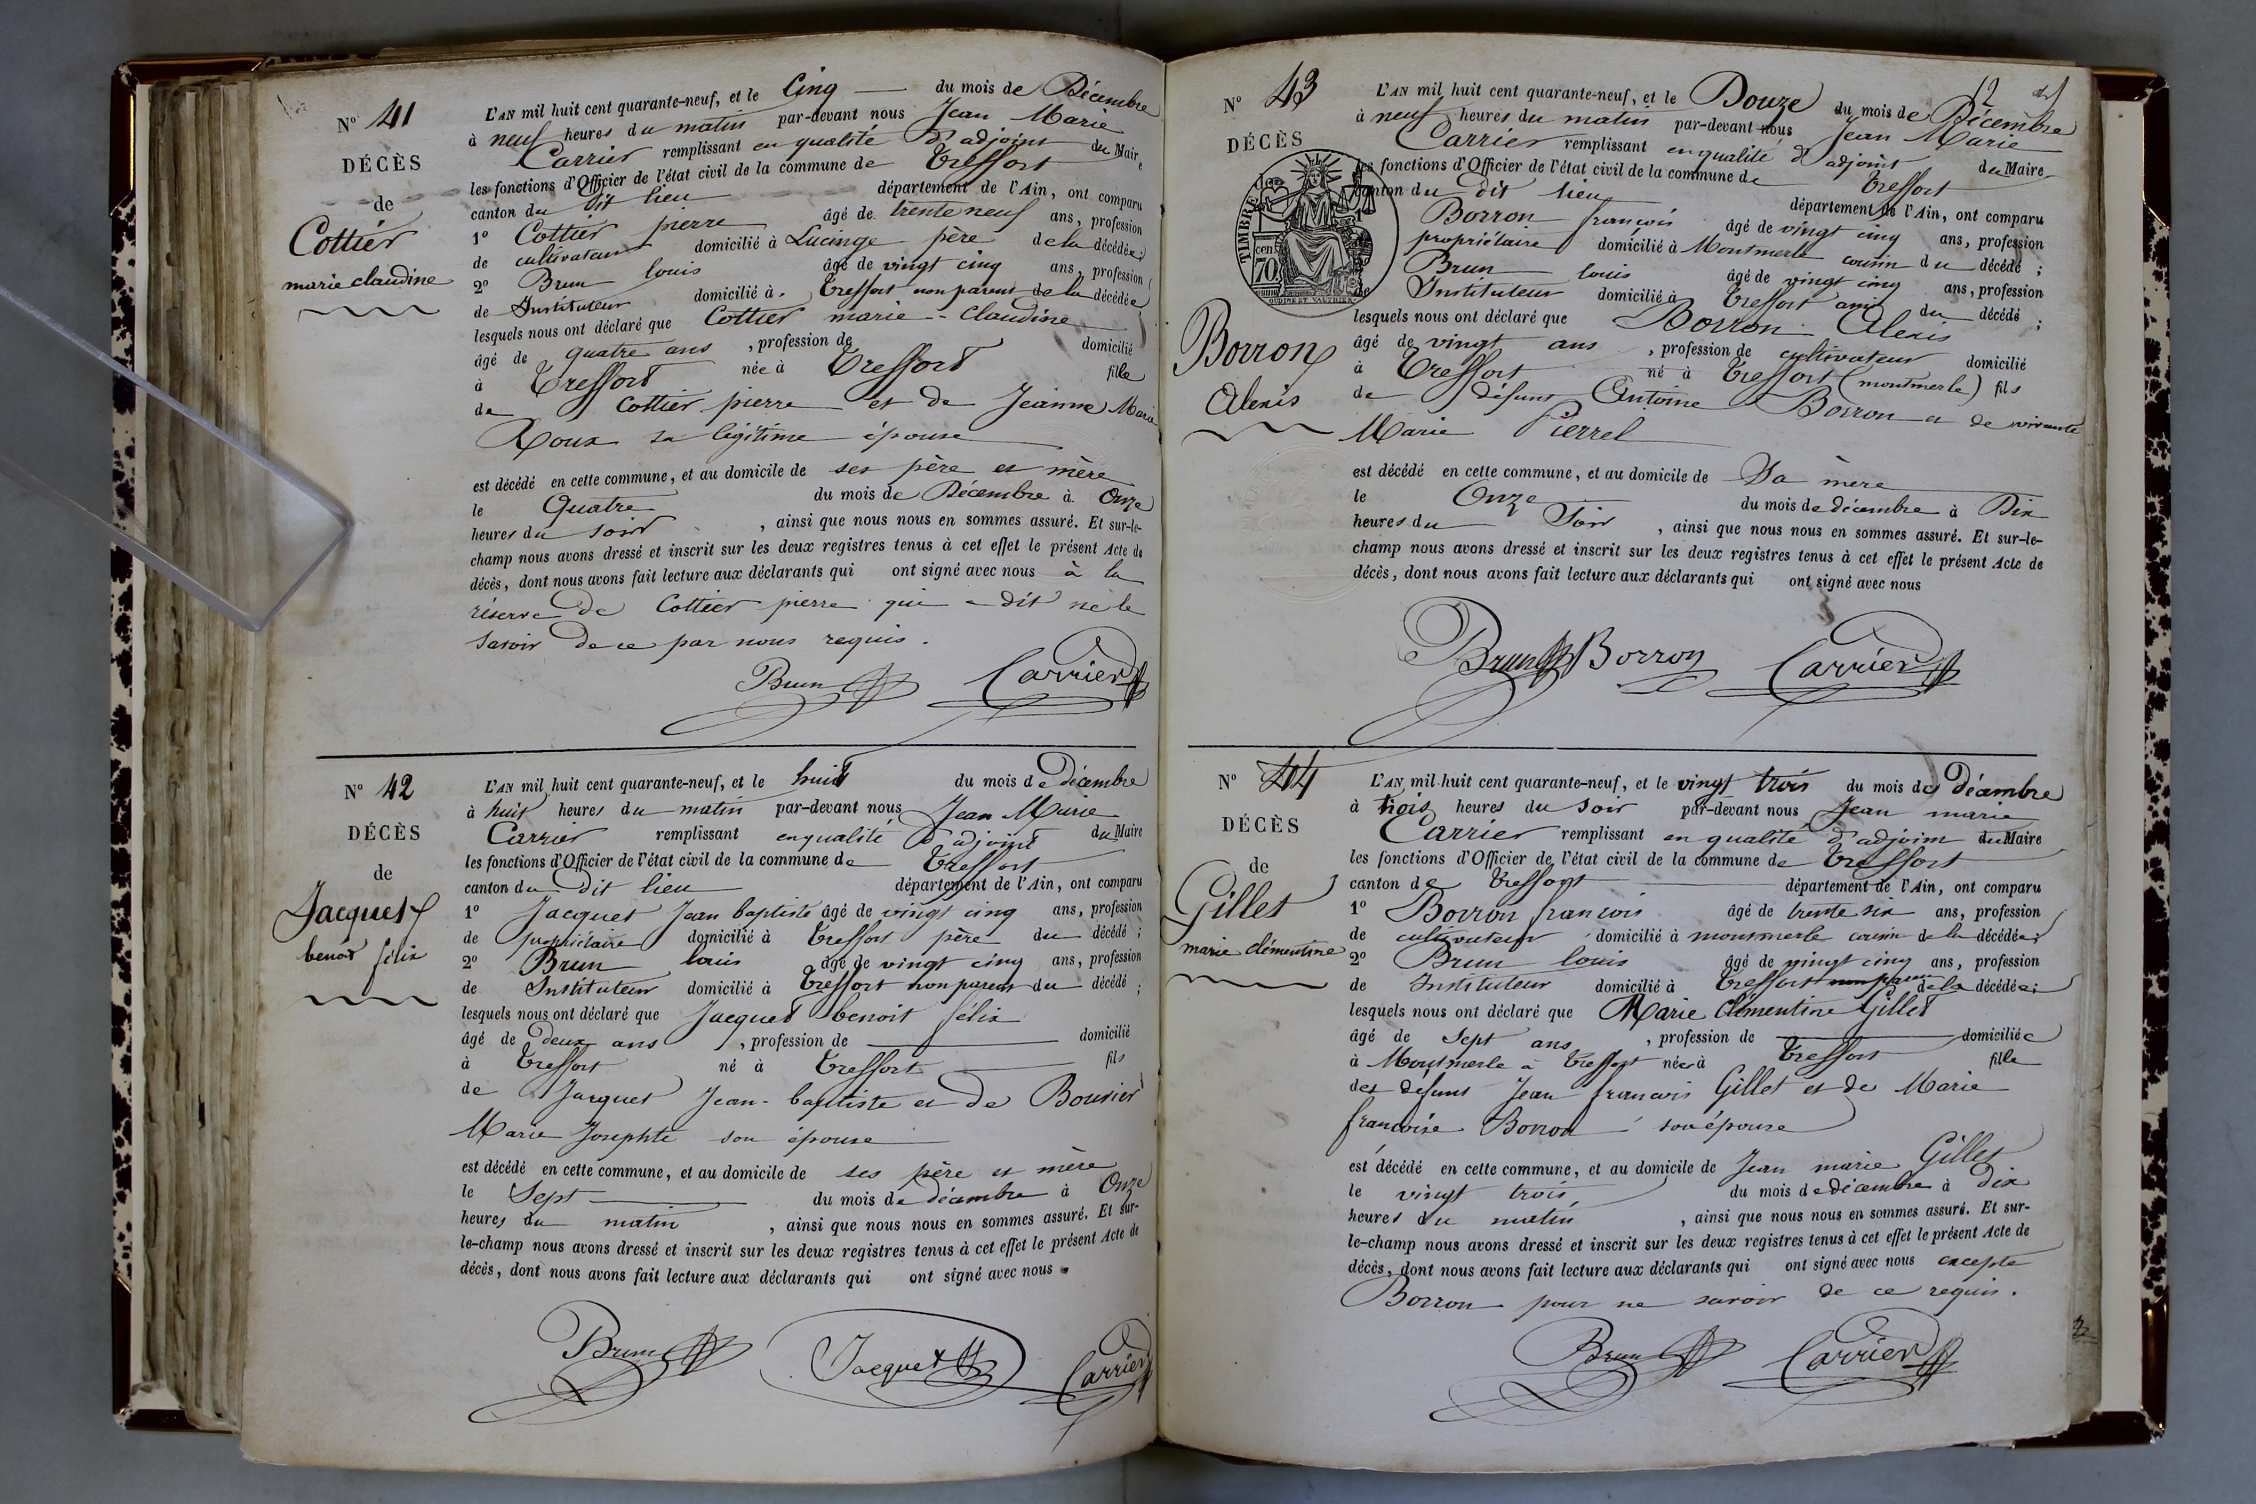 N° 41
DÉCÈS
de
Cottier
marie claudine
L'AN mil huit cent quarante-neuf, et le Cinq du mois de Décembre
à neuf heures du matin par-devant nous Jean Marie
Carrier remplissant en qualité d'adjoint du Maire
les fonctions d'Officier de l'état civil de la commune de Treffort
canton du dit lieu département de l'Ain, ont comparu
1° Cottier pierre âgé de trente neuf ans, profession
de cultivateur domicilié à Lucinge père de la décédée;
2° Brun louis âgé de vingt cinq ans, profession
de Instituteur domicilié à Treffort non parent de la décédée
lesquels nous ont déclaré que Cottier marie-claudine
âgé de quatre ans, profession de domicilié
à Treffort née à Treffort fille
de Cottier pierre et de Jeanne Marie
Roux sa légitime épouse
est décédé en cette commune, et au domicile de ses père et mère
le Quatre du mois de Décembre à Onze
heures du soir, ainsi que nous nous en sommes assuré. Et sur-le-
champ nous avons dressé et inscrit sur les deux registres tenus à cet effet le présent Acte de
décès, dont nous avons fait lecture aux déclarants qui ont signé avec nous à la
réserve de Cottier pierre qui a dit ne le
savoir de ce par nous requis.
Brun Carrier
N° 42
DÉCÈS
de
Jacquet
benoit félix
L'AN mil huit cent quarante-neuf, et le huit du mois de décembre
à huit heures du matin par-devant nous Jean Marie
Carrier remplissant en qualité d'adjoint du Maire
les fonctions d'Officier de l'état civil de la commune de Treffort
canton du dit lieu département de l'Ain, ont comparu
1° Jacquet Jean baptiste âgé de vingt cinq ans, profession
de propriétaire domicilié à Treffort père du décédé;
2° Brun louis âgé de vingt cinq ans, profession
de Instituteur domicilié à Treffort non parent du décédé;
lesquels nous ont déclaré que Jacquet benoit félix
âgé de deux ans, profession de domicilié
à Treffort né à Treffort fils
de Jacquet Jean-baptiste et de Bouvier
Marie Josephte son épouse
est décédé en cette commune, et au domicile de ses père et mère
le Sept du mois de décembre à Onze
heures du matin, ainsi que nous nous en sommes assuré. Et sur-
le-champ nous avons dressé et inscrit sur les deux registres tenus à cet effet le présent Acte de
décès, dont nous avons fait lecture aux déclarants qui ont signé avec nous
Brun Jacquet Carrier
12
N° 43
DÉCÈS
de
TIMBRE
70
cen
OUDINE ET VAUTHIER
Borron
Alexis
L'AN mil huit cent quarante-neuf, et le Douze du mois de Décembre
à neuf heures du matin par-devant nous Jean Marie
Carrier remplissant en qualité d'adjoint du Maire
les fonctions d'Officier de l'état civil de la commune de Treffort
canton du dit lieu département de l'Ain, ont comparu
Borron françois âgé de vingt cinq ans, profession
propriétaire domicilié à Montmerle cousin du décédé;
Brun louis âgé de vingt cinq ans, profession
de Instituteur domicilié à Treffort ami du décédé;
lesquels nous ont déclaré que Borron Alexis
âgé de vingt ans, profession de cultivateur domicilié
à Treffort né à Treffort (montmerle) fils
de défunt Antoine Borron et de vivante
Marie Pierrel
est décédé en cette commune, et au domicile de Sa mère
le Onze du mois de décembre à Dix
heures du Soir, ainsi que nous nous en sommes assuré. Et sur-le-
champ nous avons dressé et inscrit sur les deux registres tenus à cet effet le présent Acte de
décès, dont nous avons fait lecture aux déclarants qui ont signé avec nous
Brun Borron Carrier
N° 44
DÉCÈS
de
Gillet
marie clémentine
L'AN mil huit cent quarante-neuf, et le vingt trois du mois de décembre
à trois heures du soir par-devant nous Jean marie
Carrier remplissant en qualité d'adjoint du Maire
les fonctions d'Officier de l'état civil de la commune de Treffort
canton de Treffort département de l'Ain, ont comparu
1° Borron françois âgé de trente six ans, profession
de cultivateur domicilié à monsmerle cousin de la décédée;
2° Brun louis âgé de vingt cinq ans, profession
de Instituteur domicilié à Treffort non parent de la décédée;
lesquels nous ont déclaré que Marie Clémentine Gillet
âgé de Sept ans, profession de domiciliée
à Montmerle à Treffort née à Treffort fille
des defunts Jean françois Gillet et de Marie
françoise Borron son épouse
est décédé en cette commune, et au domicile de Jean marie Gillet
le vingt trois du mois de décembre à dix
heures du matin, ainsi que nous nous en sommes assuré. Et sur-
le-champ nous avons dressé et inscrit sur les deux registres tenus à cet effet le présent Acte de
décès, dont nous avons fait lecture aux déclarants qui ont signé avec nous excepté
Borron pour ne savoir de ce requis.
Brun Carrier